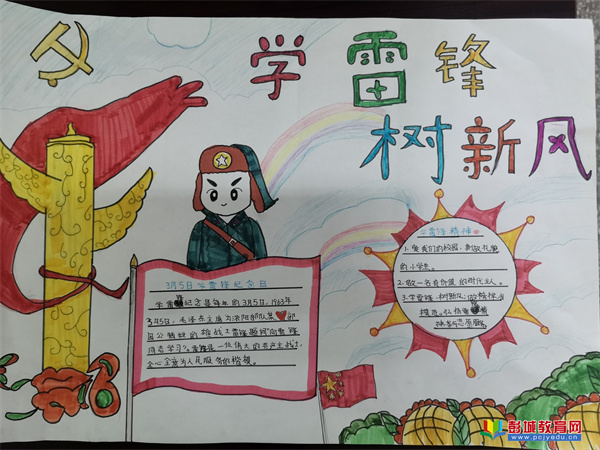 学雷锋
树新风
3月5日学雷锋纪念日
学雷纪念日是每年的3月5日,1963年
3月5日,毛泽东主席为沈阳部队
雷锋题词"向雷锋
同志学习"。雷锋是一位伟大的共产主义战士
全心全意为人民服务的楷模。
学雷锋精神
1.爱我们的校园,争做礼貌
的小学生。
2.做一名有价值的时代主人。
3.学雷锋·树新风,做榜样
彭城教育网
www.pcjyedu.cn